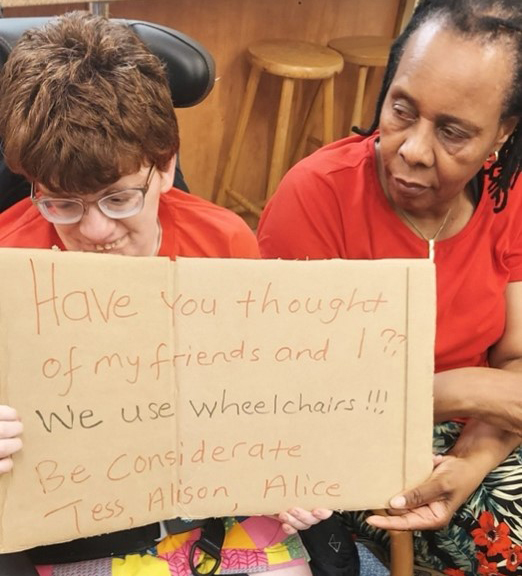 Have you thought
of my friends and I ??
We use wheelchairs !!!
Be Considerate
Tess, Alison, Alice